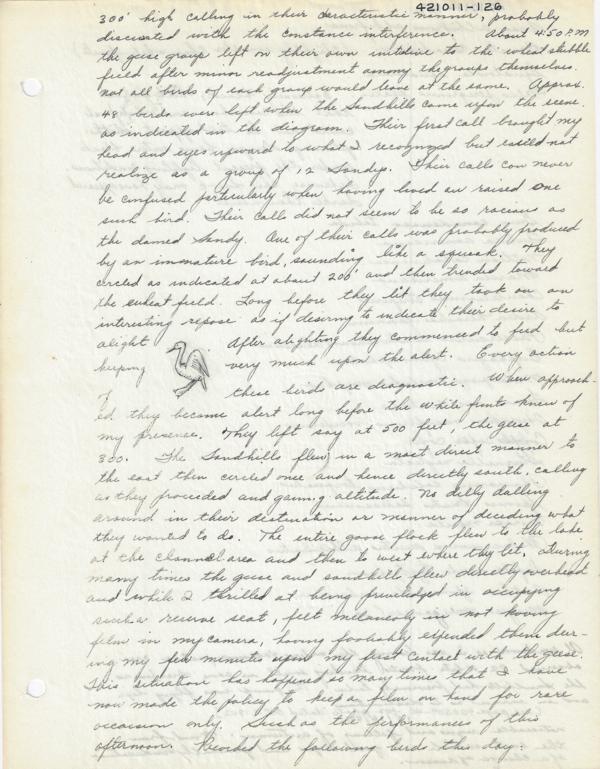 421011-126
300' high calling in their characteristic manner, probably
discussed with the constance interference. About 4:50 P.M
the geese group left on their own intitive to the wheat stubble
field after minor readjustment among the groups themselves.
not all birds of each group would leave at the same. Approx.
48 birds were left when the Sandhills came upon the scene.
as indicated in the diagram. Their first call brought my
head and eyes upward to what I recognized but could not
realize as a group of 12 Sandys. Their calls can never
be confused particularly when having lived an raised one
such bird. Their calls did not seem to be so racious as
the damed Sandy. One of their calls was probably produced
by an immature bird, sounding like a squeak. They
circled as indicated at about 200' and then trended toward
the wheat field. Long before they lit they took on an
interesting repose as if desiring to indicate their desire to
alight After alighting they commenced to feed but
keeping very much upon the alert. Every action
of these birds are diagnostic. When approach-
ed they became alert long before the white fronts knew of
my presence. They left say at 500 feet, the geese at
300. The Sandhills flew in a most direct manner to
the east then circled once and hence directly south, calling
as they proceded and gaining altitude. No dilly dalling
around in their destination or manner of deciding what
they wanted to do. The entire goose flock flew to the lake
at the channel area and then to west where they lit. During
many times the geese and sandhills flew directly overhead
and while I thrilled at being priviledged in occupying
such a reserve seat, felt melancoly in not having
film in my camera, having foolishly expended them dur-
ing my few minutes upon my first contact with the geese.
This situation has happened so many times that I have
now made the policy to keep a film on hand for rare
occaision only. Such as the performances of this
afternoon. Recorded the following birds this day: